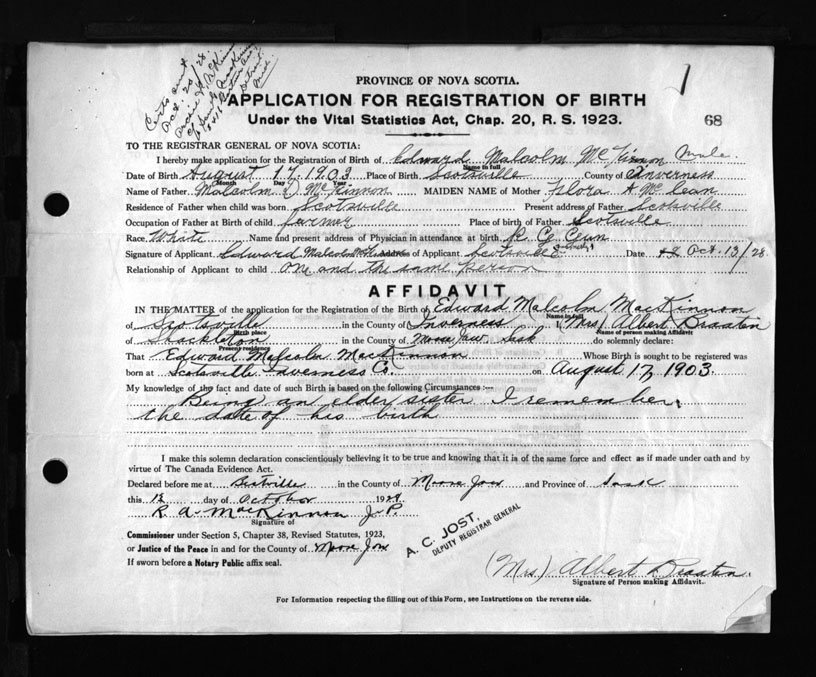 Certs sent
Oct 20/28.
PROVINCE OF NOVA SCOTIA.
APPLICATION FOR REGISTRATION OF BIRTH
Under the Vital Statistics Act, Chap. 20, R. S. 1923.
68
TO THE REGISTRAR GENERAL OF NOVA SCOTIA:
I hereby make application for the Registration of Birth of Edward Malcolm McKinnon Male.
Name in full
Date of Birth August 17, 1903 Place of Birth Scotsville County of Inverness
Month Day Year
Name of Father Malcolm D McKinnon MAIDEN NAME of Mother Flora A McLean
Residence of Father when child was born Scotsville Present address of Father Scotsville
Occupation of Father at Birth of child farmer Place of birth of Father Scotsville
Race White Name and present address of Physician in attendance at birth
Signature of Applicant Edward Malcolm McKinnon Address of Applicant Scotsville Date Oct. 13/28
Relationship of Applicant to child One and the same person
AFFIDAVIT
IN THE MATTER of the application for the Registration of the Birth of Edward Malcolm MacKinnon
Name in full
of Scotsville in the County of Inverness I, Mrs Albert
Birth place Name of person making Affidavit
of Shackleton in the County of Moose Jaw Sask do solemnly declare:
Present residence
That Edward Malcolm MacKinnon Whose Birth is sought to be registered was
born at Scotsville Inverness Co. on August 17, 1903.
My knowledge of the fact and date of such Birth is based on the following Circumstances :—
Being an elder sister I remember
the date of his birth
I make this solemn declaration conscientiously believing it to be true and knowing that it is of the same force and effect as if made under oath and by
virtue of The Canada Evidence Act.
Declared before me at in the County of Moose Jaw and Province of Sask
this 12 day of October 1928
R. A. MacKinnon J. P.
Signature of
Commissioner under Section 5, Chapter 38, Revised Statutes, 1923,
or Justice of the Peace in and for the County of Moose Jaw
If sworn before a Notary Public affix seal.
A. C. JOST,
DEPUTY REGISTRAR GENERAL
(Mrs) Albert
Signature of Person making Affidavit.
For Information respecting the filling out of this Form, see Instructions on the reverse side.